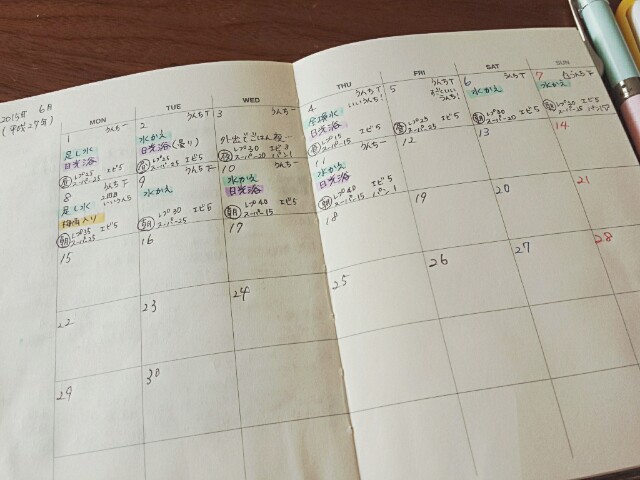 2015年 6月
(平成27年)
MON TUE WED THU FRI SAT SUN
1 うんちー
足し水
日光浴
レプ25 エビ5
スーパー25
2
水かえ
日光浴(曇り)
エビ5
スーパー25
3 うんちー
外出しごはん夜…
レプ30
スーパー20 パン1
4 うんちT
いいうんち!
全換水
日光浴
レプ15 エビ5
スーパー15
5 うんちT
うんち!
レプ25 エビ5
スーパー25
6 うんちT
水かえ
朝 レプ30 エビ5
スーパー20
7
水かえ
レプ20 エビ5
スーパー25
8 うんち下
2回目
いいうんち
足し水
梅雨入り
朝 レプ35 エビ5
スーパー25
9 うんち下
水かえ
朝 レプ30 エビ5
スーパー25
10 うんちー
水かえ
日光浴
朝 レプ40 エビ5
スーパー15 パン1
11 うんちー
水かえ
日光浴
朝 レプ40 エビ5
スーパー15 パン1
12
13
14
15
16
17
18
19
20
21
22
23
24
25
26
27
28
29
30